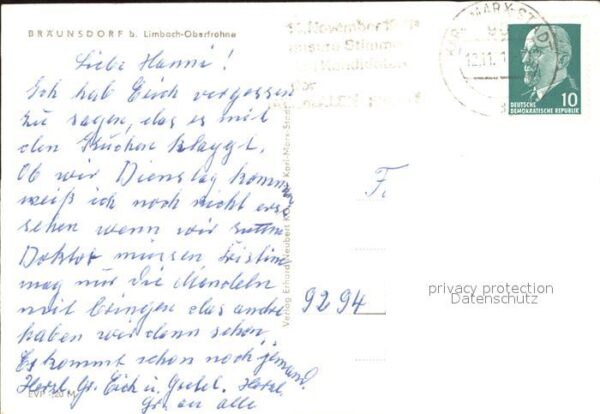 BRÄUNSDORF b. Limbach-Oberfrohna
Liebe Hanni!
Ich hab Euch vergessen
zu sagen, das es mit
den Kuchen klappt.
Ob wir Dienstag komm
weiß ich noch nicht erst
sehen wenn wir zum
Doktor müssen
mag nur die Mandeln
mit bringen das andre
haben wir dann schon.
Es kommt schon noch jemand.
Herzl. Gr. Eich u. Gretel. Herzl.
Gr. an alle
EVP -,20 M
Verlag Erhard Neubert KG, Karl-Marx-Stadt
November
unsere Stimme
Kandidaten
der
KARL-MARX-STADT
12.11.
10
DEUTSCHE
DEMOKRATISCHE REPUBLIK
F
9294
privacy protection
Datenschutz